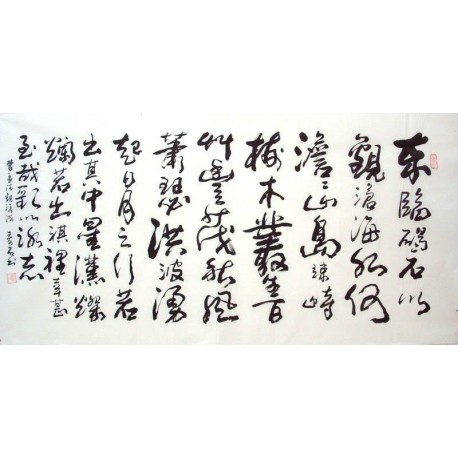 東臨碣石以
觀滄海水何
澹〻山島竦峙
樹木叢生百
艸豐茂秋風
蕭瑟洪波湧
起日月之行若
出其中星漢燦
爛若出其裡幸甚
至哉歌以詠志
曹 觀滄海 書